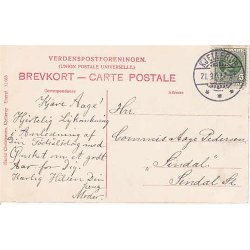 VERDENSPOSTFORENINGEN.
(UNION POSTALE UNIVERSELLE)
BREVKORT — CARTE POSTALE
Correspondance
Adresse
Kjære Aage!
Hjertelig Lykønskning
i Anledning af
Din Fødselsdag med
Ønsket om et godt
Aar for Dig!
Kærlig Hilsen Din
Moder
Hr.
Commis Aage Pedersen
"Sindal"
Sindal St.
5